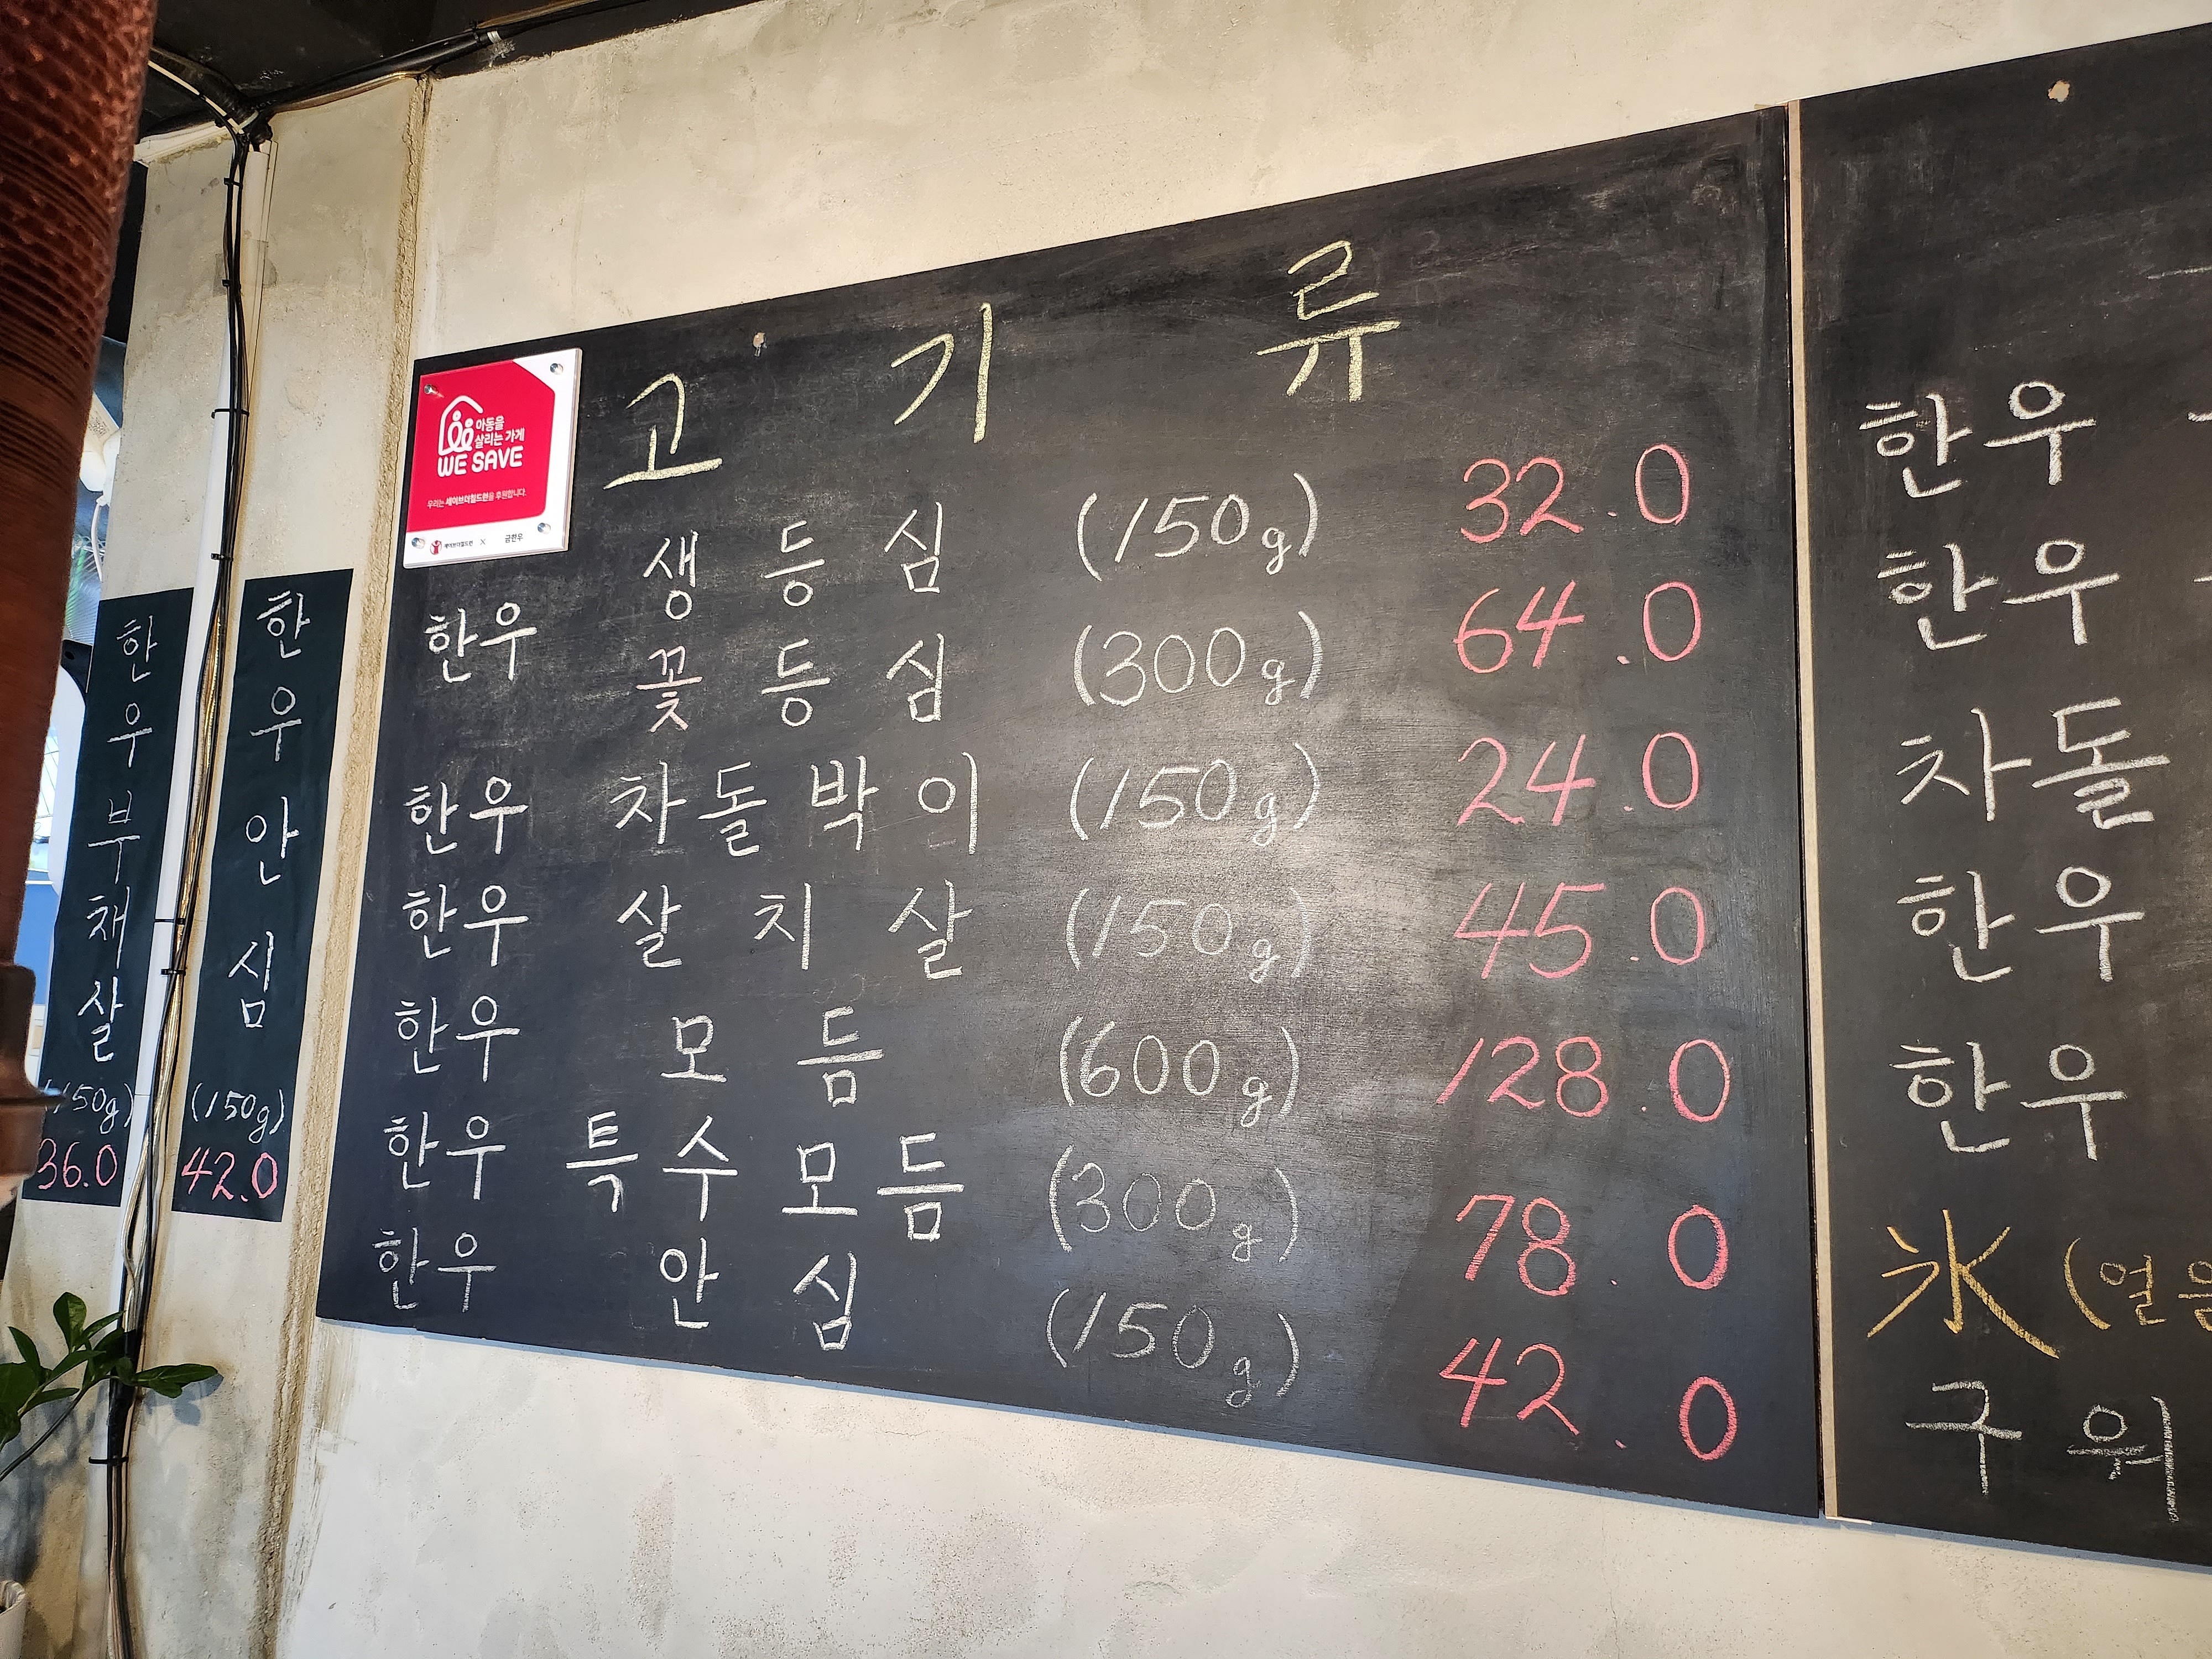 한우부채살
(150g)
36.0
한우안심
(150g)
42.0
아동을
살리는 가게
WE SAVE
우리는 세이브더칠드런을 후원합니다.
세이브더칠드런 X 금한우
고기류
한우 생등심 (150g) 32.0
꽃등심 (300g) 64.0
한우 차돌박이 (150g) 24.0
한우 살치살 (150g) 45.0
한우 모듬 (600g) 128.0
한우 특수모듬 (300g) 78.0
한우 안심 (150g) 42.0
한우
한우
차돌
한우
한우
氷 (얼음
구워